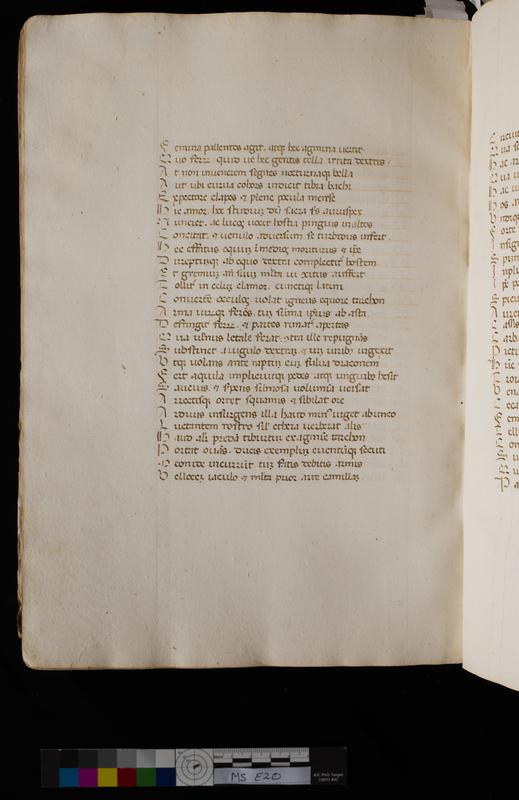 F emina pallentes agit. atq; hec agmina uertit
Q uo ferrũ. quid ue hec gentis tella irrita dextris?
A t non inuenerem segnes nocturnaq; bella
A ut ubi curua cohors indicit tibia bachi
E xpectare dapes et plene pocula mense
H ic amor. hoc studium dũ sacra sc̃s auruspex
N unciet. ac lucos uocet hostia pinguis inaltos
C oncitat. et uenulo aduersum se turbidus infert
H ec effatus equum ĩ medios moriturus et ip̃e
D ireptumq; ab equo dextra complectit hostem
E t gremium añ suum mlta ui xitus auffert
T ollit in celum clamor. cunctiq; latini
C onuersẽ occulos; uolat igneus equore tarchon
A rma uirumq; ferẽs. tum sũma ipsius ab asta
D effringit ferrũ. et partes rimat̃ apertas
Q ua uulnus letale ferat. 9tra ille repugnãs
S ubstinet a iugulo dextram et uim uirib; uͥ exit
V tq; uolans ante raptum cum fulua draconem
F ert aquila implicuitq; pedes atq; unguib; hesit
S aucius. et serpens sinuosa uolumina uersat
A rrectisq; orret squamis et sibilat ore
A rduus insurgens illa haud min9 urget abunco
L uctantem rostro sil' ethera uerberat alis
H aud ali predã tiburtum exagmine tarchon
P ortat ouãs. ducis exemplum euentũq; secuti
M eonide incurrũt tum fatis debitus aruns
V ellocem iaculo et mlta prior arte camillam
MS E20